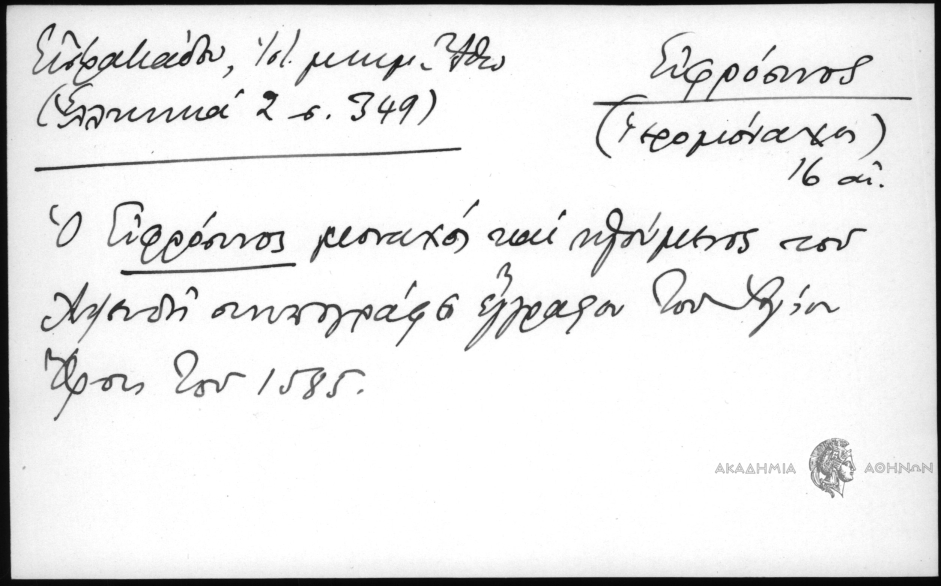 Εὐστρατιάδου, Ἱστ. μνημ. Ἄθω
(Ἑλληνικά 2 σ. 349)
Εὐφρόσυνος
(ἱερομόναχος)
16 αἰ.
Ὁ Εὐφρόσυνος μοναχός καί ἡγούμενος τοῦ
συνυπογράφει ἔγγραφον τοῦ Ἁγίου
Ὄρους τοῦ 1585.
ΑΚΑΔΗΜΙΑ ΑΘΗΝΩΝ